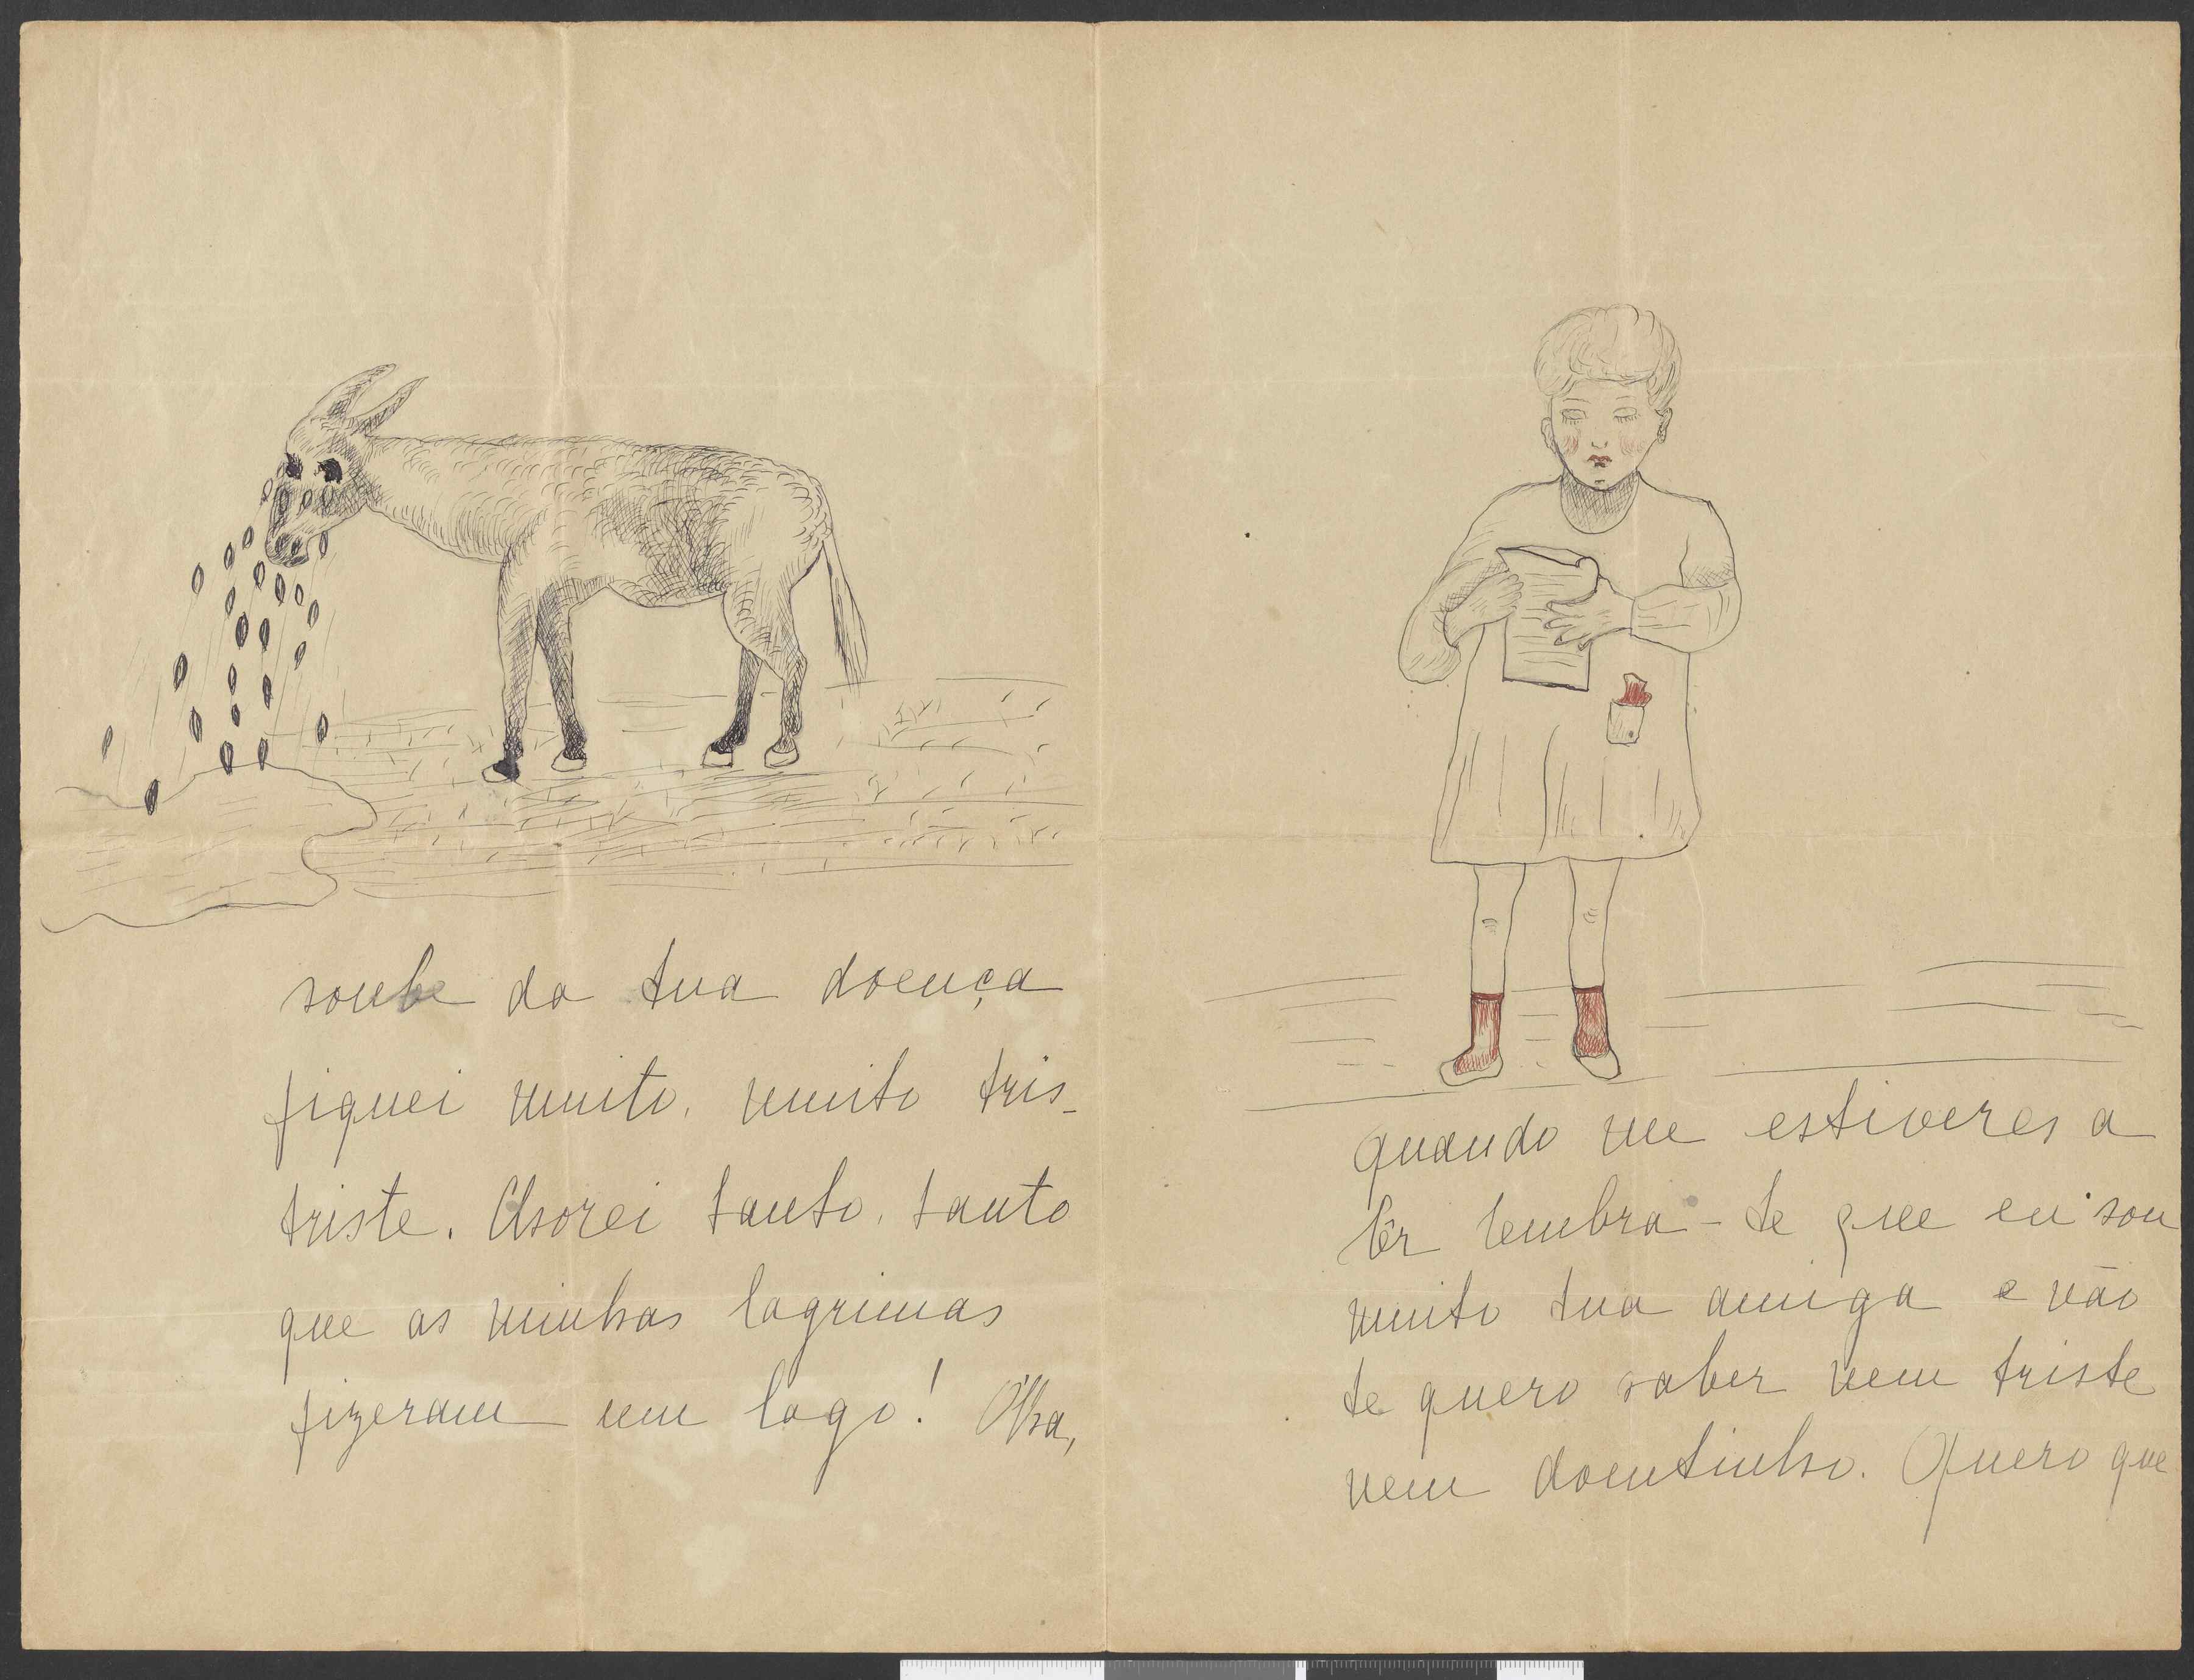 soube da tua doença
fiquei muito, muito tris-
triste. Chorei tanto, tanto
que as minhas lagrimas
fizeram um lago! Olha,
quando me estiveres a
lêr lembra-te que eu sou
muito tua amiga e não
te quero saber nem triste
nem doentinho. Quero que